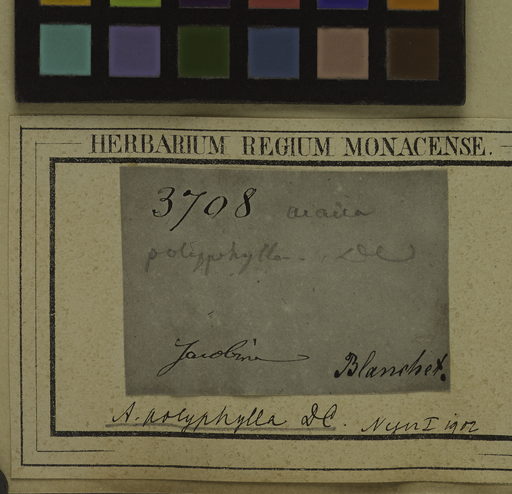 HERBARIUM REGIUM MONACENSE.
3708 acacia
polyphylla. DC
Jacobina
Blanchet.
A. polyphylla DC. I 1902